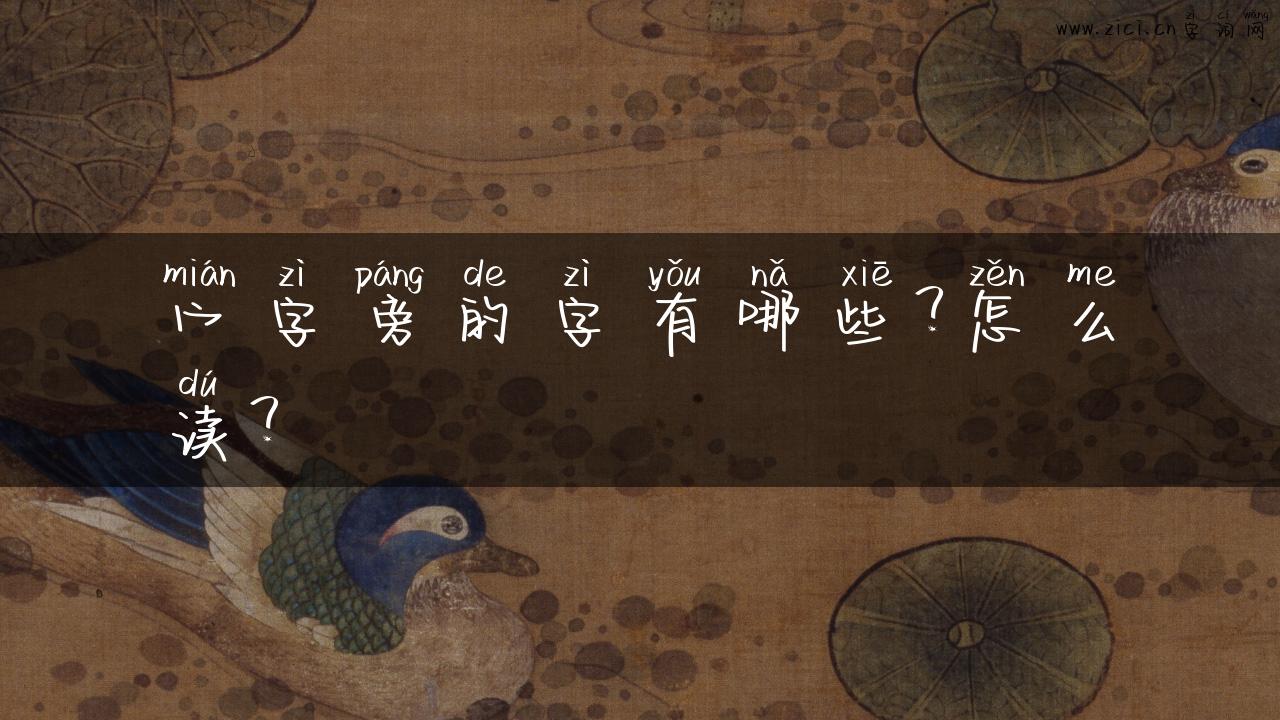 zì cí wǎng
www.zici.cn 字词网
mián zì páng de zì yǒu nǎ xiē zěn me
宀字旁的字有哪些?怎么
dú
读?